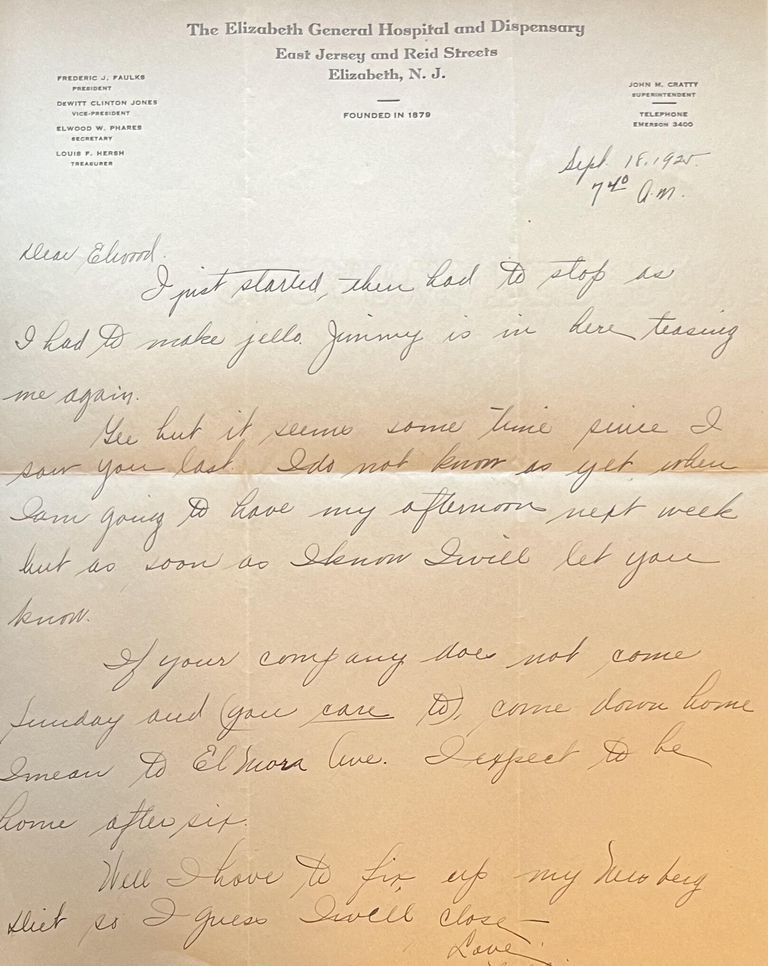 The Elizabeth General Hospital and Dispensary
East Jersey and Reid Streets
Elizabeth, N. J.
FOUNDED IN 1879
FREDERIC J. FAULKS
PRESIDENT
DEWITT CLINTON JONES
VICE-PRESIDENT
ELWOOD W. PHARES
SECRETARY
LOUIS F. HERSH
TREASURER
JOHN M. CRATTY
SUPERINTENDENT
TELEPHONE
EMERSON 3400
Sept. 18, 1925.
7 40 A.M.
Dear Elwood.
I just started, then had to stop as
I had to make jello. Jimmy is in here teasing
me again.
Gee but it seems some time since I
saw you last. I do not know as yet when
I am going to have my afternoon next week
but as soon as I know I will let you
know.
If your company does not come
Sunday and (you care to), come down home
I mean to El Mora Ave. I expect to be
home after six.
Well I have to fix up my Newberg
diet so I guess I will close—
Love